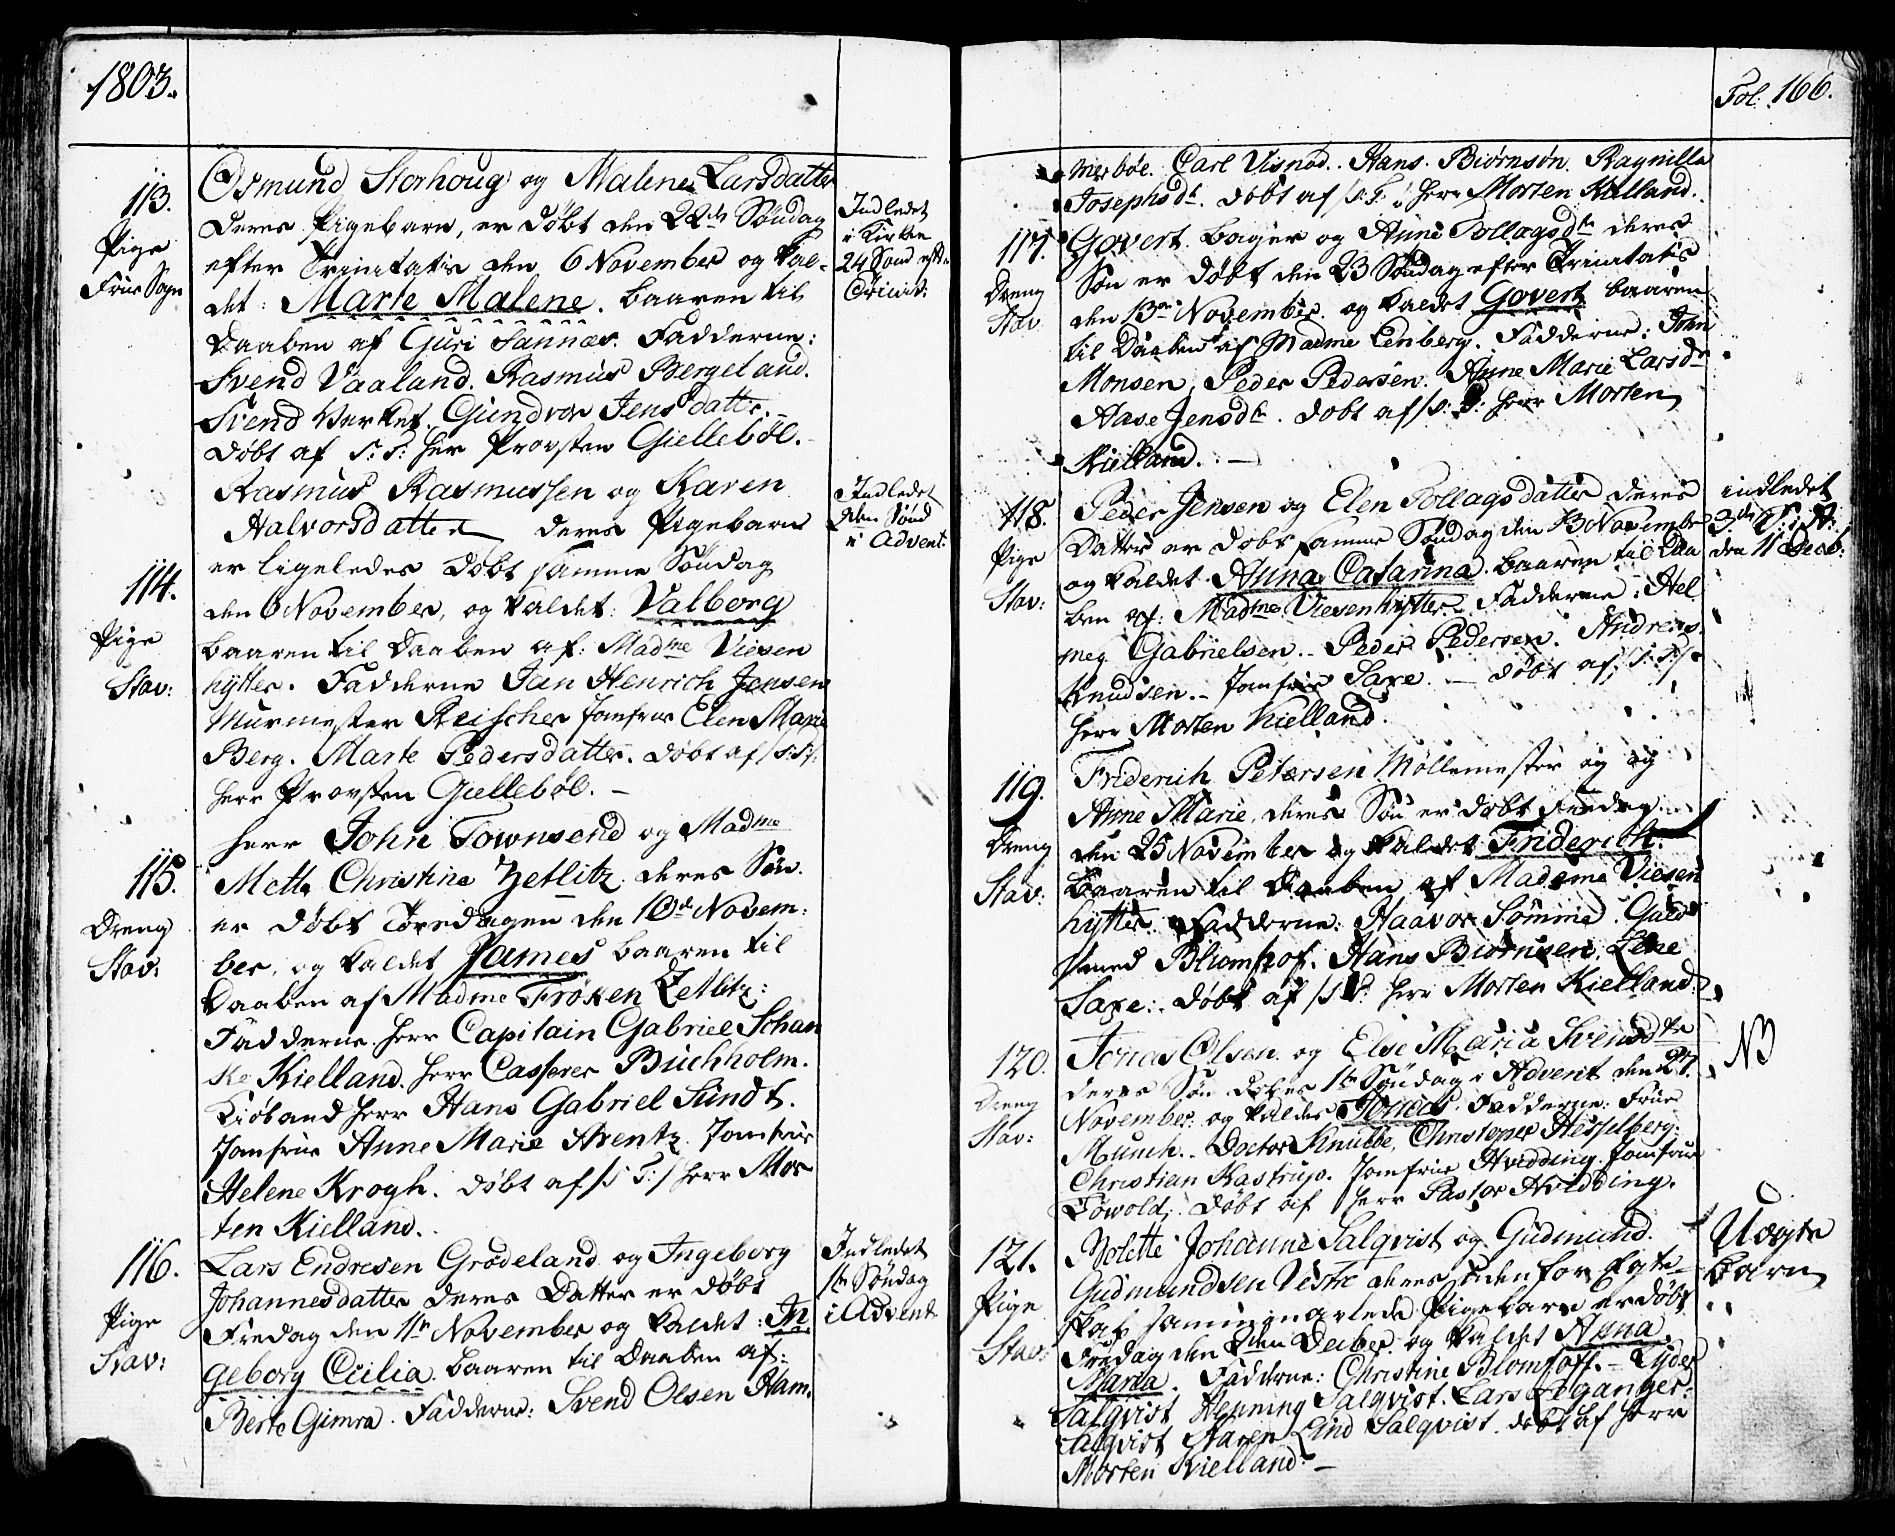 1803.
113.
Pige
Frue Sogn
Osmund Storhoug og Malene Larsdatter
deres Pigebarn, er døbt den 22de Søndag
efter Trinitatis den 6 November og kal-
det: Marte Malene. baaren til
Daaben af Guri Sannæs. Fadderne:
Svend Vaaland. Rasmus Bergeland.
Svend Verket. Gundvor Jens datter.
døbt af S: T: Herr Provsten Gielleböl.
Indledet
i Kirken
24 Sønd eft
Trinit:
114.
Pige
Stav:
Rasmus Rasmussen og Karen
Halvorsdatter deres Pigebarn
er ligeledes døbt samme Søndag
den 6 November, og kaldet: Valborg
baaren til Daaben af: Madme Viesen
hytter. Fadderne Jan Henrich Jensen
Murmester Reischer Jomfrue Elen Marie
Berg. Marte Pedersdatter. døbt af S: T:
Herr Provsten Gielleböl.
Indledet
den Sønd
i Advent.
115.
Dreng
Stav:
Herr John Townsend og Madme
Mette Christine Zetlitz deres Søn
er døbt Torsdagen den 10de Novem:
ber, og kaldet James baaren til
Daaben af Madme Frøken Zetlitz:
Fadderne Herr Capitain Gabriel Schan
ke Kielland. Herr Casper Buchholm.
Kiöbmand Herr Hans Gabriel Sundt.
Jomfrue Anne Marie Arentz. Jomfrue
Helene Krogh. døbt af /: S: T: / Herr Mor
ten Kielland.
116.
Pige
Stav:
Lars Endresen Grødeland og Ingeborg
Johannesdatter deres Datter er døbt
Fredag den 11te November og kaldet: In
geborg Cicilia. baaren til Daaben af:
Berte Gimra. Fadderne: Svend Olsen Ham
Indledet
1te Søndag
i Advent
Fol. 166.
merböe. Carl Visnæd. Hans Biørnsøn. Ragnilla
Josephsdt. døbt af S. T. Herr Morten Kielland.
117.
Dreng
Stav
Govert bager og Anne Tollagsdtr deres
Søn er døbt den 23 Søndag efter Trinitatis
den 13de November. og kaldet Govert baaren
til Daaben af Madme Eenberg. Fadderne: John
Monsen, Peder Pedersen. Anne Marie Larsdr
Aase Jensdtr. døbt af S: T: Herr Morten
Kielland.
118.
Pige
Stav:
Peder Jensen og Elen Tollagsdatter deres
Datter er døbt samme Søndag den 13 November
og kaldet Anna Catarina. baaren til Daa
ben af: Madme Viesenhytter. Fadderne: Hel
meg Gabrielsen. Peder Pedersen. Andreas
Knudsen. Jomfrue Saxe. døbt af S: T:
Herr Morten Kielland.
indledet
3de S: i A:
den 11 Decb:
119.
Dreng
Stav:
Friderich Petersen Møllemester og og
Anne Marie, deres Søn er døbt Fredag
den 25 November og kaldet Friderich.
baaren til Daaben af Madame Viesen
hytter. Fadderne: Haavor Sømme. Guld
smed Blomhof. Hans Biørnsen, Lene
Saxe: døbt af S T: Herr Morten Kielland.
120.
Dreng
Stav:
Jonas Olsen og Else Maria Svensdtr
deres Søn døbes 1te Søndag i Advent den 27.
November og kaldes Jonas. Fadderne: Frue
Munch. Doctor Knubbe, Christopher Hesselberg.
Christian Kastrup. Jomfrue Hvidding Jomfrue
Towold, døbt af Herr Pastor Hvidding.
NB
121.
Pige
Stav:
Bolette Johanne Salqvist og Gudmund
Gudmundsen Veste deres uden for Egte-
skab sammenavlede Pigebarn er døbt
Fredag den 2den Decber. og kaldet Anna
Maria. Fadderne: Christine Blomhoff. Lyder
Salqvist Henning Salqvist. Lars Leganger
Salqvist Karen Lind Salqvist. døbt af Herr
Morten Kielland.
Uægte
barn